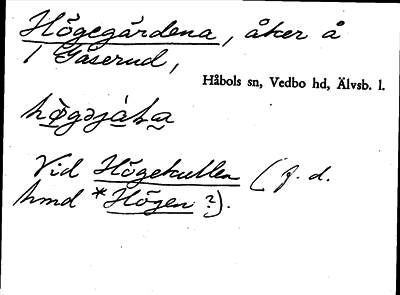 Högegärdena, åker å
1 Gåserud,
Håbols sn, Vedbo hd, Älvsb. l.
Vid Högekullen (f. d.
hmd *Högen ?).